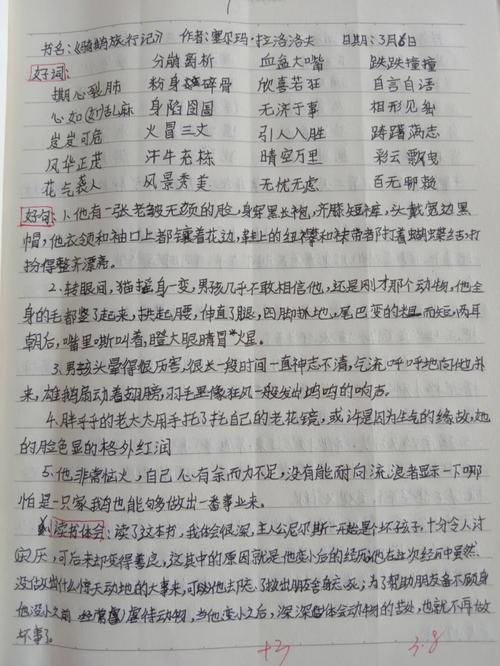 书名:《骑鹅旅行记》 作者:塞尔玛·拉洛洛夫 日期:3月6日
好词: 分崩离析 血盆大嘴 跌跌撞撞
撕心裂肺 粉身碎骨 欣喜若狂 自言自语
心如乱麻 身陷囹圄 无济于事 相形见绌
岌岌可危 火冒三丈 引人入胜 踌躇满志
风华正茂 汗牛充栋 晴空万里 彩云飘曳
花气袭人 风景秀美 无忧无虑 百无聊赖
好句:1.他有一张老皱无须的脸,身穿黑长袍,齐膝短裤,头戴宽边黑
帽,他衣领和袖口上都镶着花边,鞋上的纽襻和袜带都打着蝴蝶结,打
扮得整齐漂亮。
2.转眼间,猫摇身一变,男孩几乎不敢相信他,还是刚才那个动物,他全
身的毛都竖了起来,拱起腰,伸直了腿,四脚抓地,尾巴变的粗而短,两耳
朝后,嘴里嘶叫着,瞪大眼睛冒火星。
3.男孩头晕得很厉害,很长一段时间一直神志不清,气流呼呼地向他扑
来,雄鹅扇动着翅膀,羽毛里像狂风一般发出呜呜的响声。
4.胖乎乎的老太太用手托了托自己的老花镜,或许是因为生气的缘故,她
的脸色显的格外红润
5.他非常恼火,自己心有余而力不足,没有能耐向流浪者显示一下哪
怕是一只家鹅也能够做出一番事业来。
读书体会:读了这本书,我体会很深,主人公尼尔斯一开始是个坏孩子,十分令人讨
厌,可后来却变得善良,这其中的原因就是他变小后的经历,他在这次经历中虽然
没做出什么惊天动地的大事来,可
为了帮助朋友奋不顾身
他没小之前 经常虐待动物,当他变小之后,深深体会动物的苦处,也就不再做
坏事了。
3.8